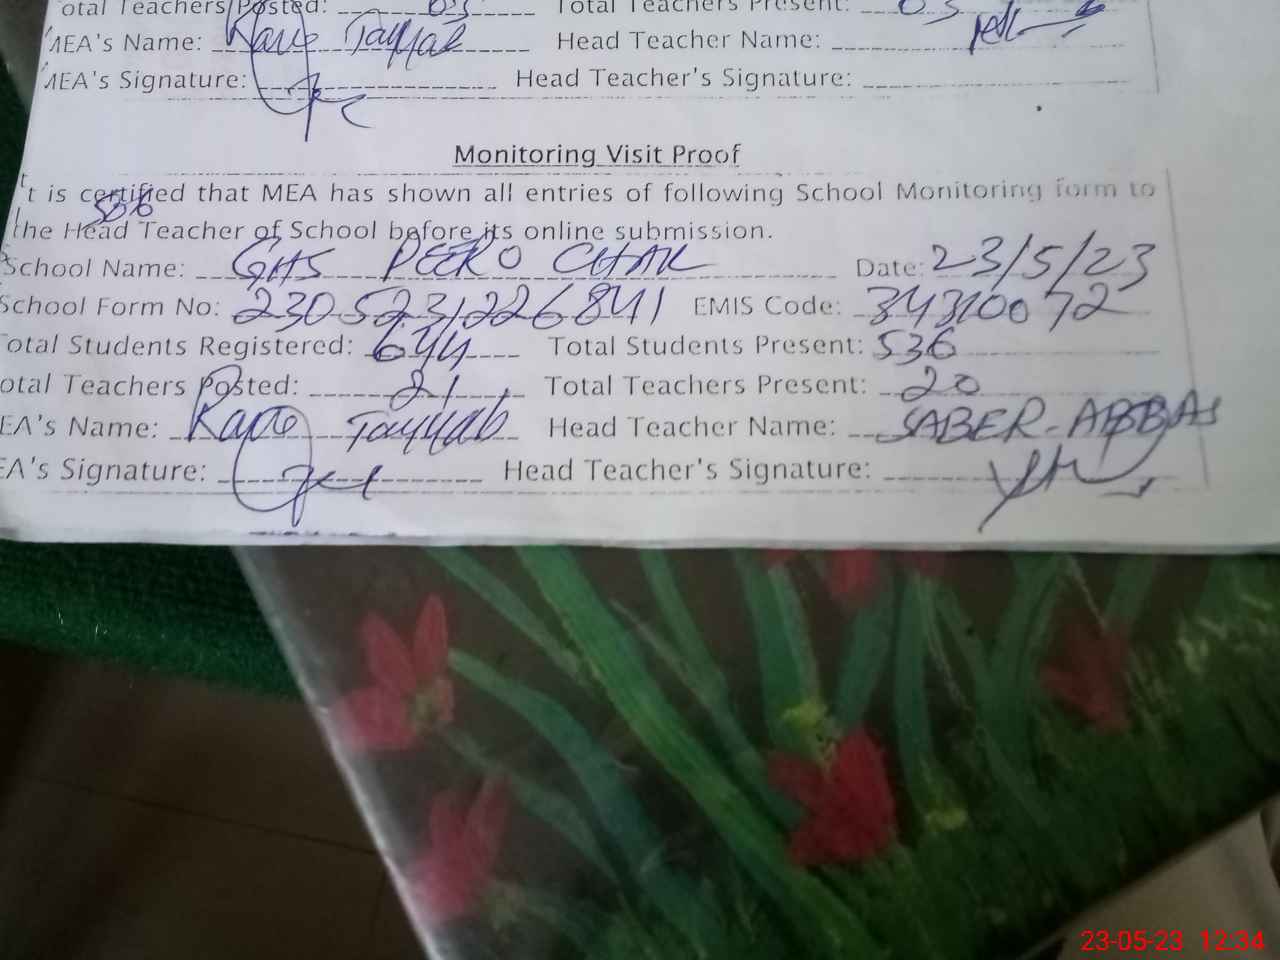 otal Teachers Posted: 03 Total Teachers Present: 03
MEA's Name: Tayyab Head Teacher Name:
MEA's Signature: Head Teacher's Signature:
Monitoring Visit Proof
t is certified that MEA has shown all entries of following School Monitoring form to
the Head Teacher of School before its online submission.
School Name: GHS PEERO CHAK Date: 23/5/23
School Form No: 2305231226841 EMIS Code: 34310072
Total Students Registered: 644 Total Students Present: 536
otal Teachers Posted: 21 Total Teachers Present: 20
EA's Name: Tayyab Head Teacher Name: SABER-ABBAS
EA's Signature: Head Teacher's Signature:
23-05-23 12:34